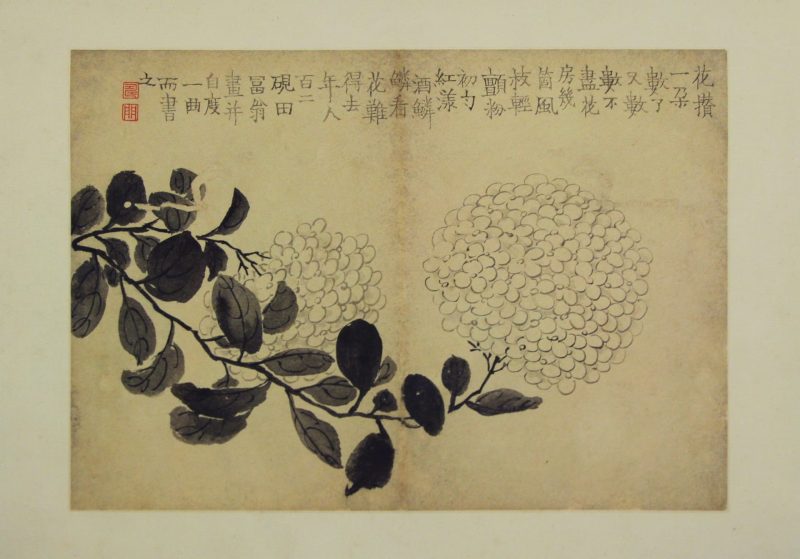 花攢
一朶
數了
又數
數不
盡花
房幾
箇風
枝輕
顫粉
初勻
紅漾
酒鱗
鱗看
花難
得去
年人
百二
硯田
冨翁
畫并
自度
一曲
而書
之